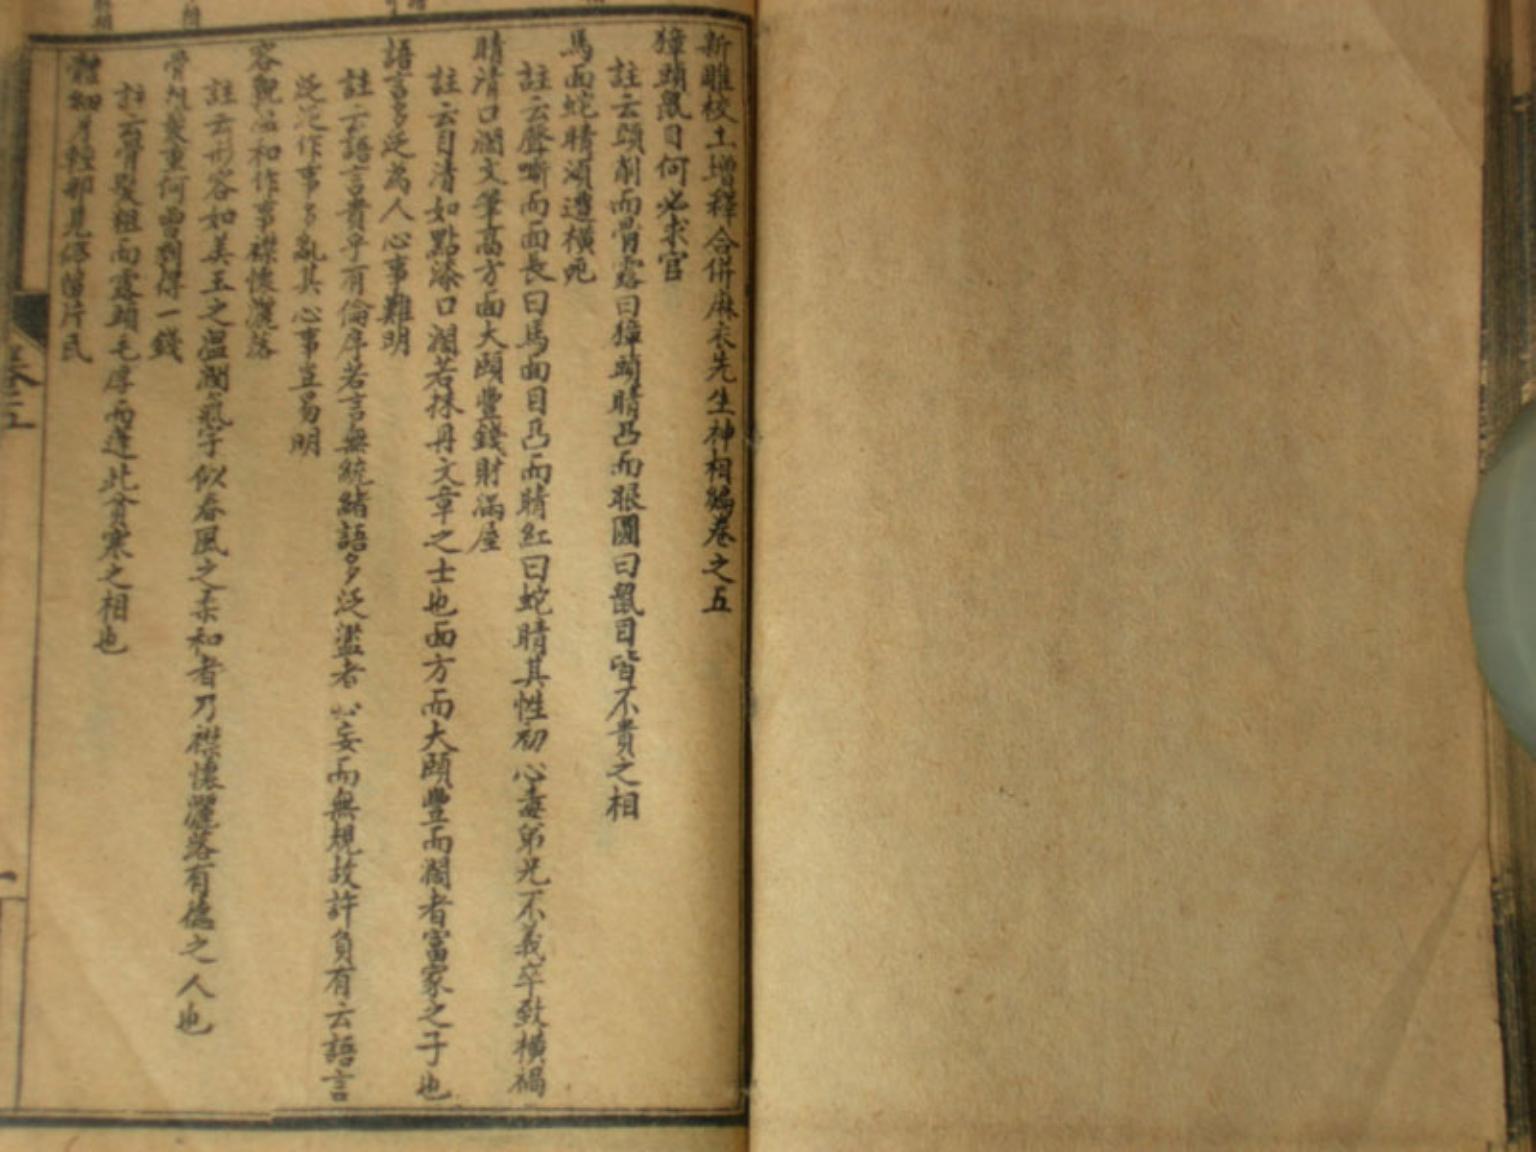 新雕校士增釋合併麻衣先生神相編卷之五
獐頭鼠目何必求官
註云頭削而骨露曰獐頭睛凸而眼圓曰鼠目皆不貴之相
馬面蛇睛須遭橫死
註云聲嘶而面長曰馬面目凸而睛紅曰蛇睛其性初心毒弟兄不義卒致橫禍
睛清口濶文筆高方面大頤豐錢財滿屋
註云目清如點漆口濶若抹丹文章之士也面方而大頤豐而濶者富家之子也
語言多泛為人心事難明
註云語言貴乎有倫序若言無統緒語多泛濫者心妄而無規故許負有云語言
泛泛作事多亂其心事豈易明
容貌温和作事襟懷灑落
註云形容如美玉之溫潤氣宇似春風之柔和者乃襟懷灑落有德之人也
骨髮重何曾剩得一錢
註云骨髮粗而露頭毛厚而逢此貧寒之相也
體細身輕那見停留片瓦
卷五
一